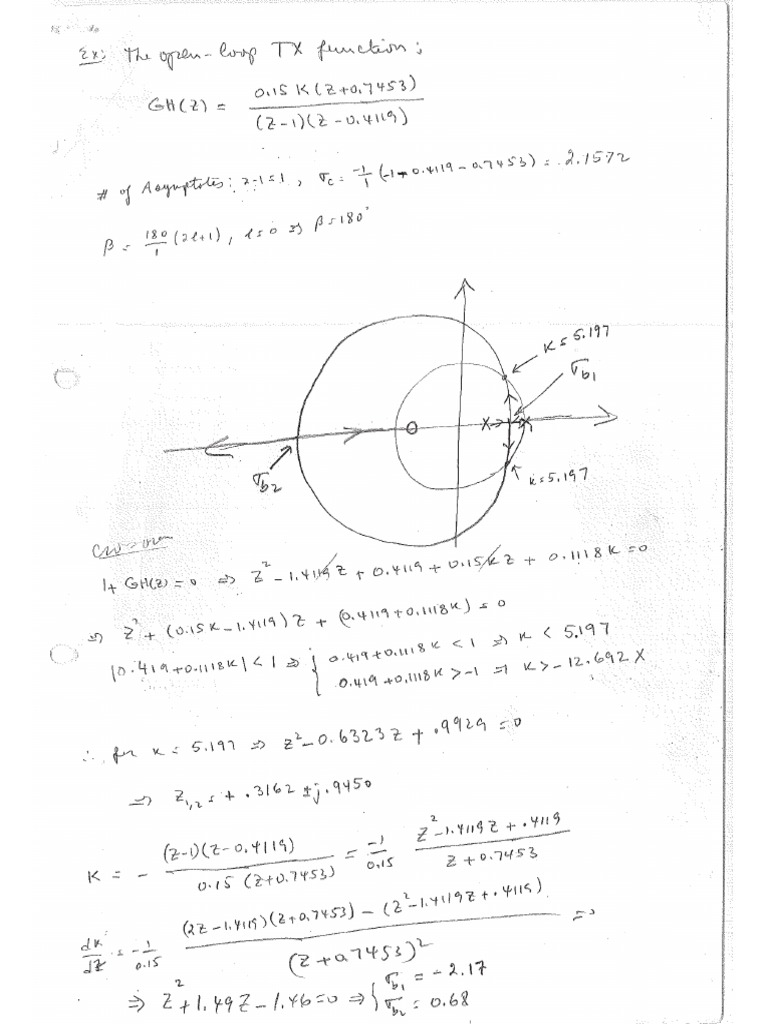 Ex: The open-loop TX function:
GH(Z) = 0.15 K(Z+0.7453) / (Z-1)(Z-0.4119)
# of Asymptotes: 2-1=1, σc = -1/1 (-1-0.4119-0.7453) = 2.1572
β = 180/1 (2l+1), l=0 ⇒ β=180°
K=5.197
σb1
X
X
σb2
K=5.197
Cross-over
1+ GH(Z)=0 ⇒ Z² -1.4119Z + 0.4119 + 0.15KZ + 0.1118K=0
⇒ Z² + (0.15K-1.4119)Z + (0.4119+0.1118K)=0
|0.419+0.1118K|<1 ⇒ { 0.419+0.1118K <1 ⇒ K < 5.197
0.419+0.1118K >-1 ⇒ K>-12.692 X
∴ for K=5.197 ⇒ Z²-0.6323Z + .9929=0
⇒ Z1,2 = + .3162 ±j.9450
K = - (Z-1)(Z-0.4119) / 0.15 (Z+0.7453) = -1/0.15 Z²-1.4119Z+.4119 / Z+0.7453
dK/dZ = -1/0.15 (2Z-1.4119)(Z+0.7453)-(Z²-1.4119Z+.4119) / (Z+0.7453)² ⇒
⇒ Z²+1.49Z-1.46=0 ⇒ { σb1 = -2.17
σb2 = 0.68